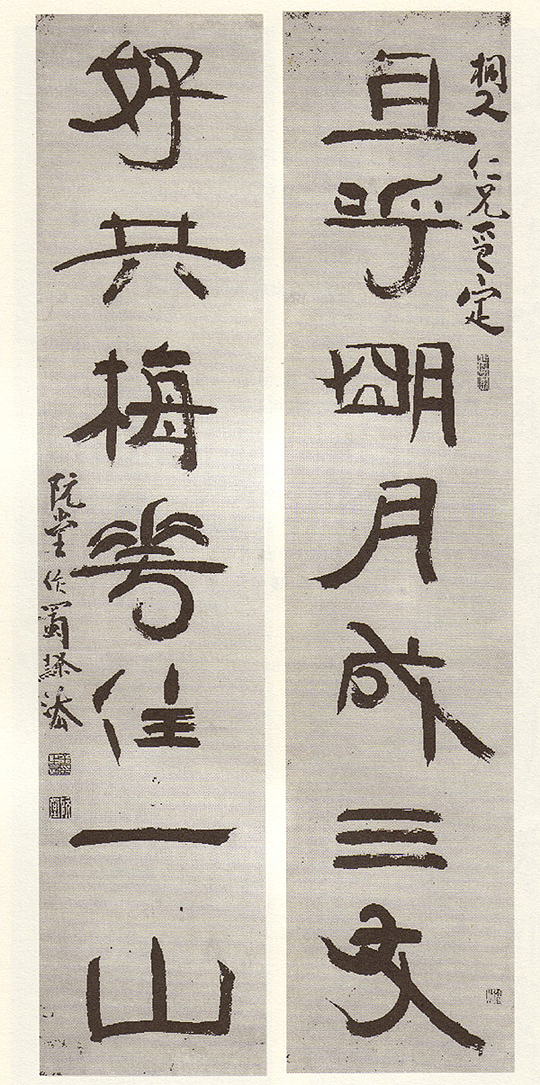 桐人仁兄定
且呼朙月成三友
好共梅花住一山
阮堂作蜀隷法